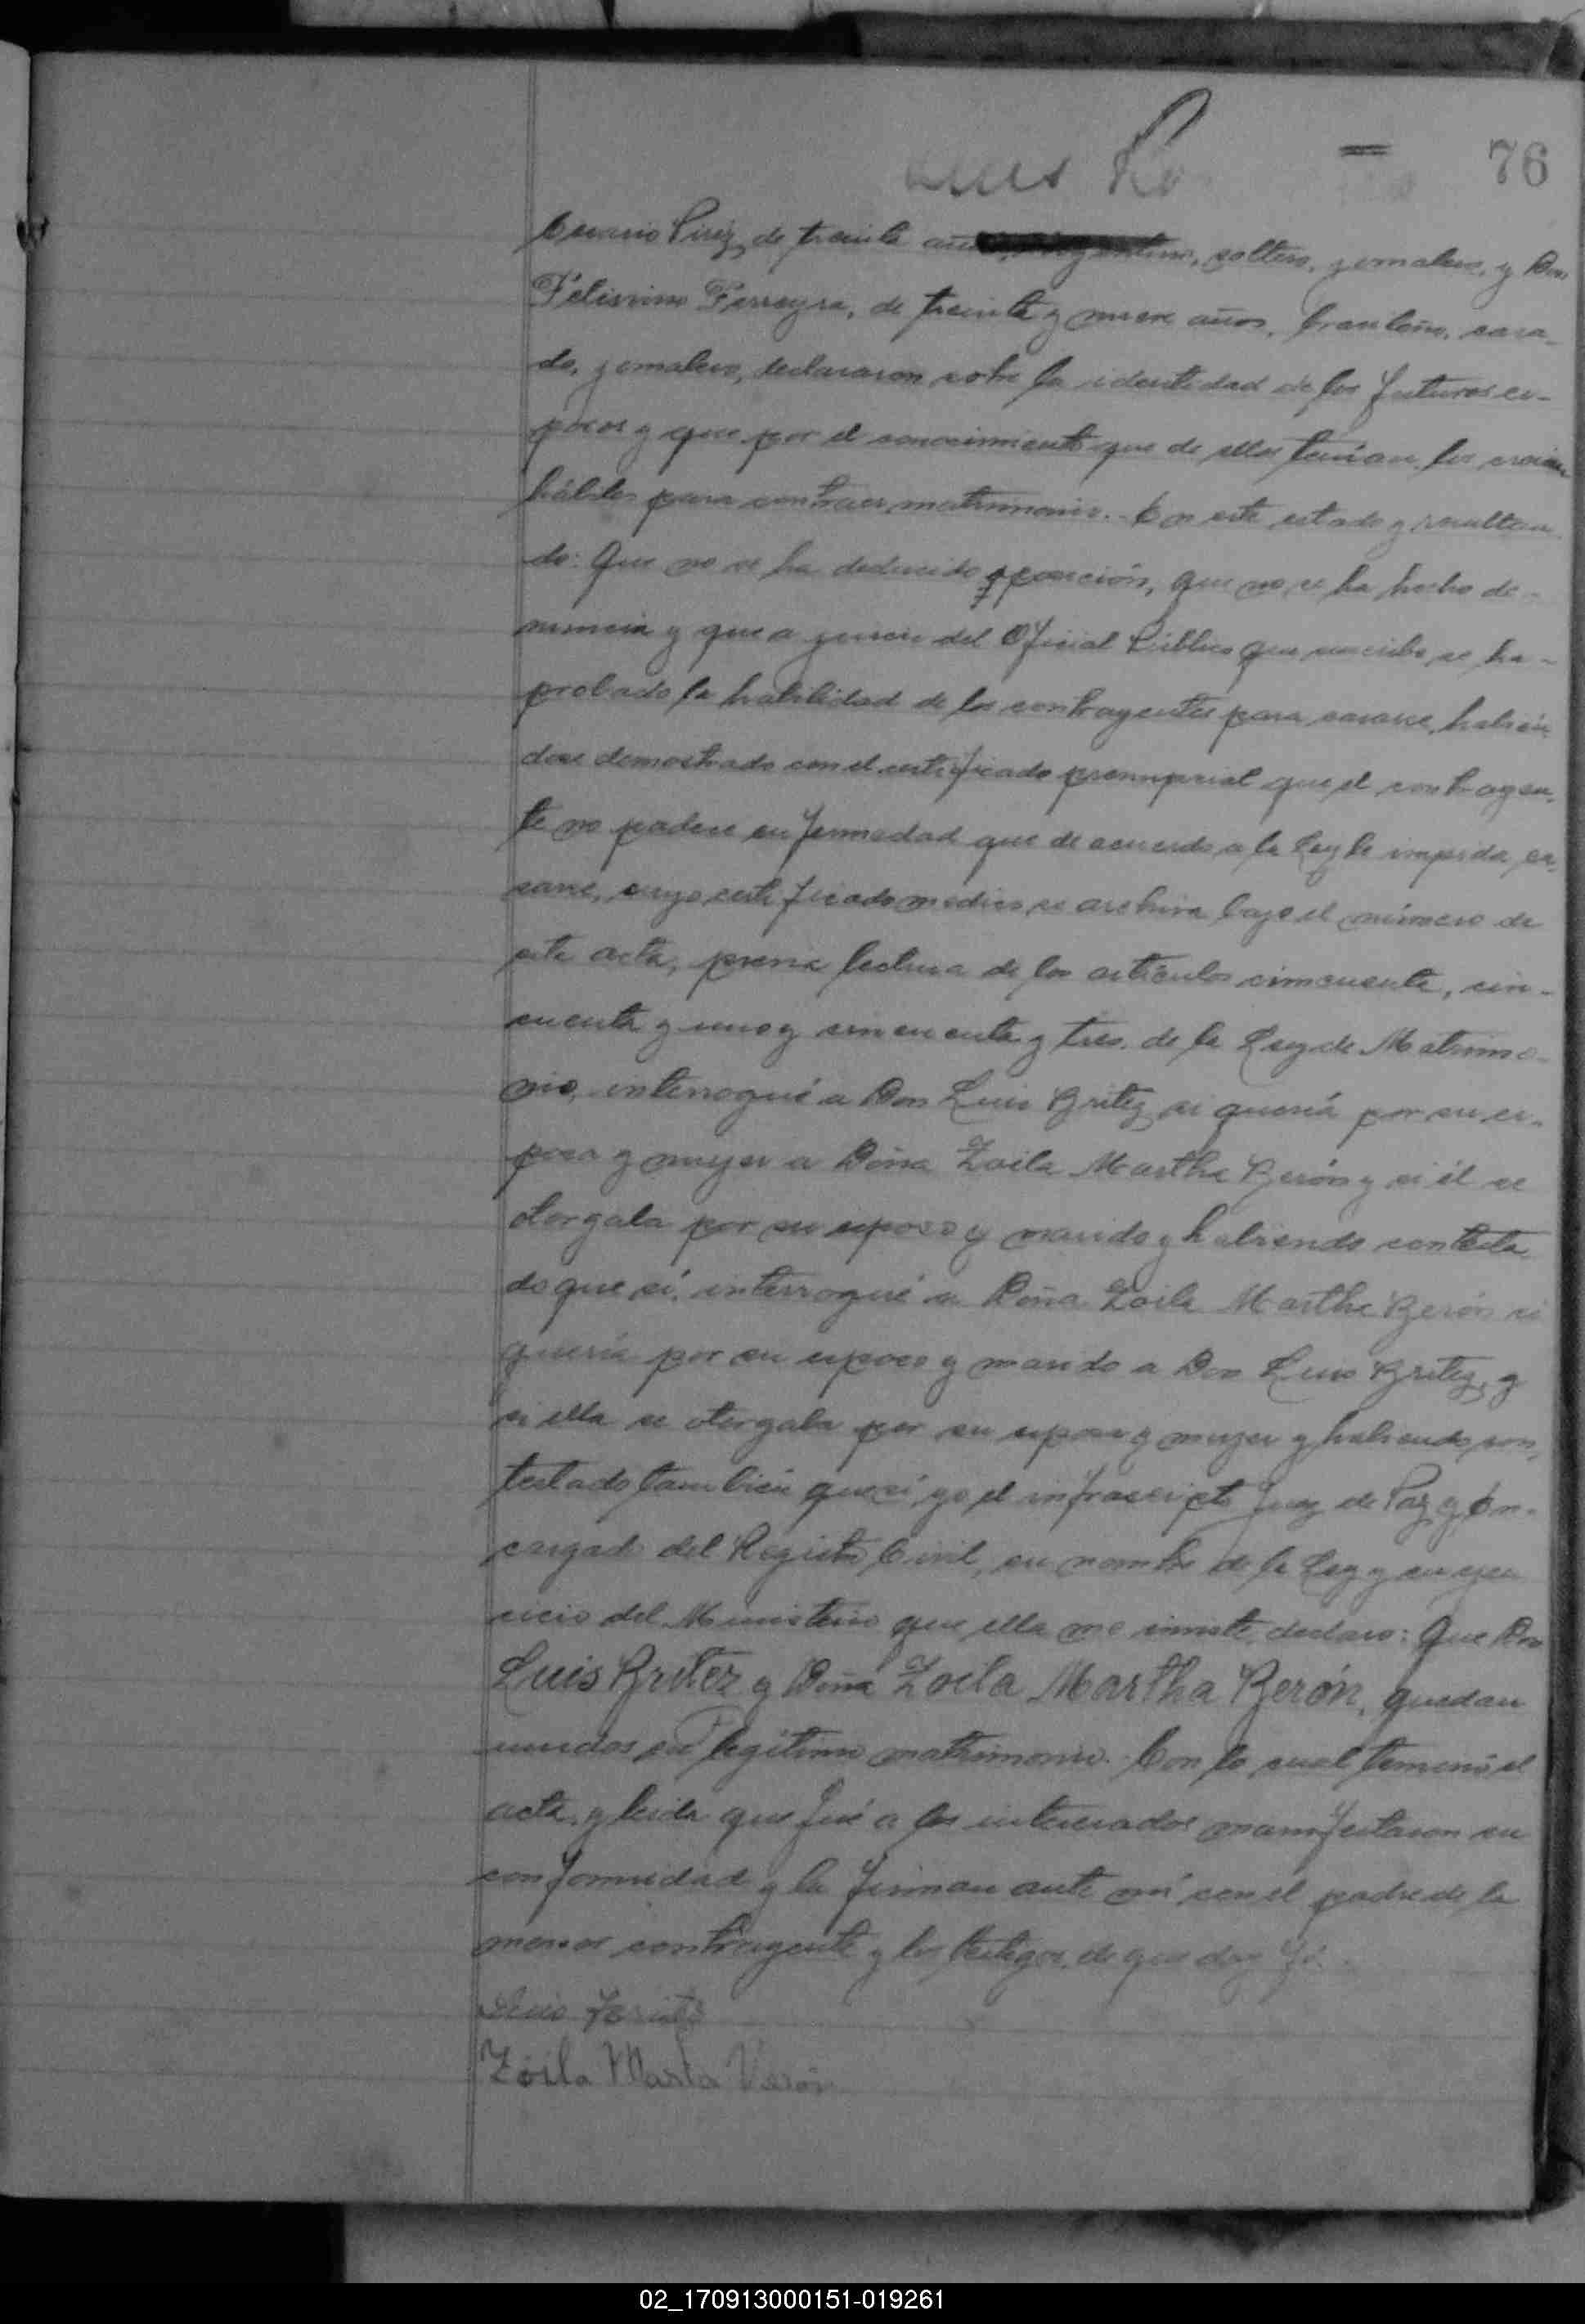 76
Pirez, de treinta años, argentino, soltero, jornalero, y Don
Felisimo Ferreyra, de treinta y nueve años, brasileño, casa-
do, jornalero, declararon sobre la identidad de los futuros es-
posos y que por el conocimiento que de ellos tenían, los creían
hábiles para contraer matrimonio.- En este estado y resultan-
do: Que no se ha deducido oposición, que no se ha hecho de-
nuncia y que a juicio del Oficial Público que suscribe, se ha-
probado la habilidad de los contrayentes para casarse, habién-
dose demostrado con el certificado prenupcial que el contrayen-
te no padece enfermedad que de acuerdo a la Ley le impida ca-
sarse, cuyo certificado médico se archiva bajo el número de
esta acta, previa lectura de los artículos cincuenta, cin-
cuenta y uno y cincuenta y tres de la Ley de Matrimo-
nio, interrogué a Don Luis Britez si quería por su es-
posa y mujer a Doña Zoila Martha Berón y si él se
otorgaba por su esposo y marido y habiendo contesta
do que sí, interrogué a Doña Zoila Martha Berón si
quería por su esposo y marido a Don Luis Britez, y
si ella se otorgaba por su esposa y mujer y habiendo con-
testado también que sí, yo el infrascripto Juez de Paz y En-
cargado del Registro Civil, en nombre de la Ley y en ejer
cicio del Ministerio que ella me inviste, declaro: Que Don
Luis Britez y Doña Zoila Martha Berón, quedan
unidos en legítimo matrimonio. Con lo cual terminó el
acta, y leída que fué a los interesados manifestaron su
conformidad y la firman ante mí con el padre de la
menor contrayente y los testigos, de que doy fé.
Luis Britez
Zoila Marta Verón
02_170913000151-019261